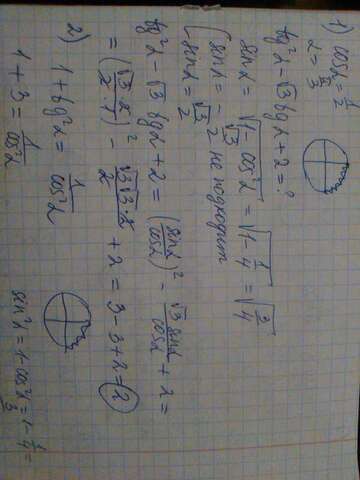 1) cos α = 1/2
α = π/3
tg²α - √3 tgα + 2 = ?
sin α = √(1 - cos²α) = √(1 - 1/4) = √(3/4)
[ sin α = -√3/2 не подходит
[ sin α = √3/2
tg²α - √3 tgα + 2 = (sinα/cosα)² - √3 sinα/cosα + 2 =
= (√3·2/2·1)² - √3√3·2/2 + 2 = 3 - 3 + 2 = 2
2) 1 + tg²α = 1/cos²α
1 + 3 = 1/cos²α
sin²α = 1 - cos²α = 1 - 1/4 =